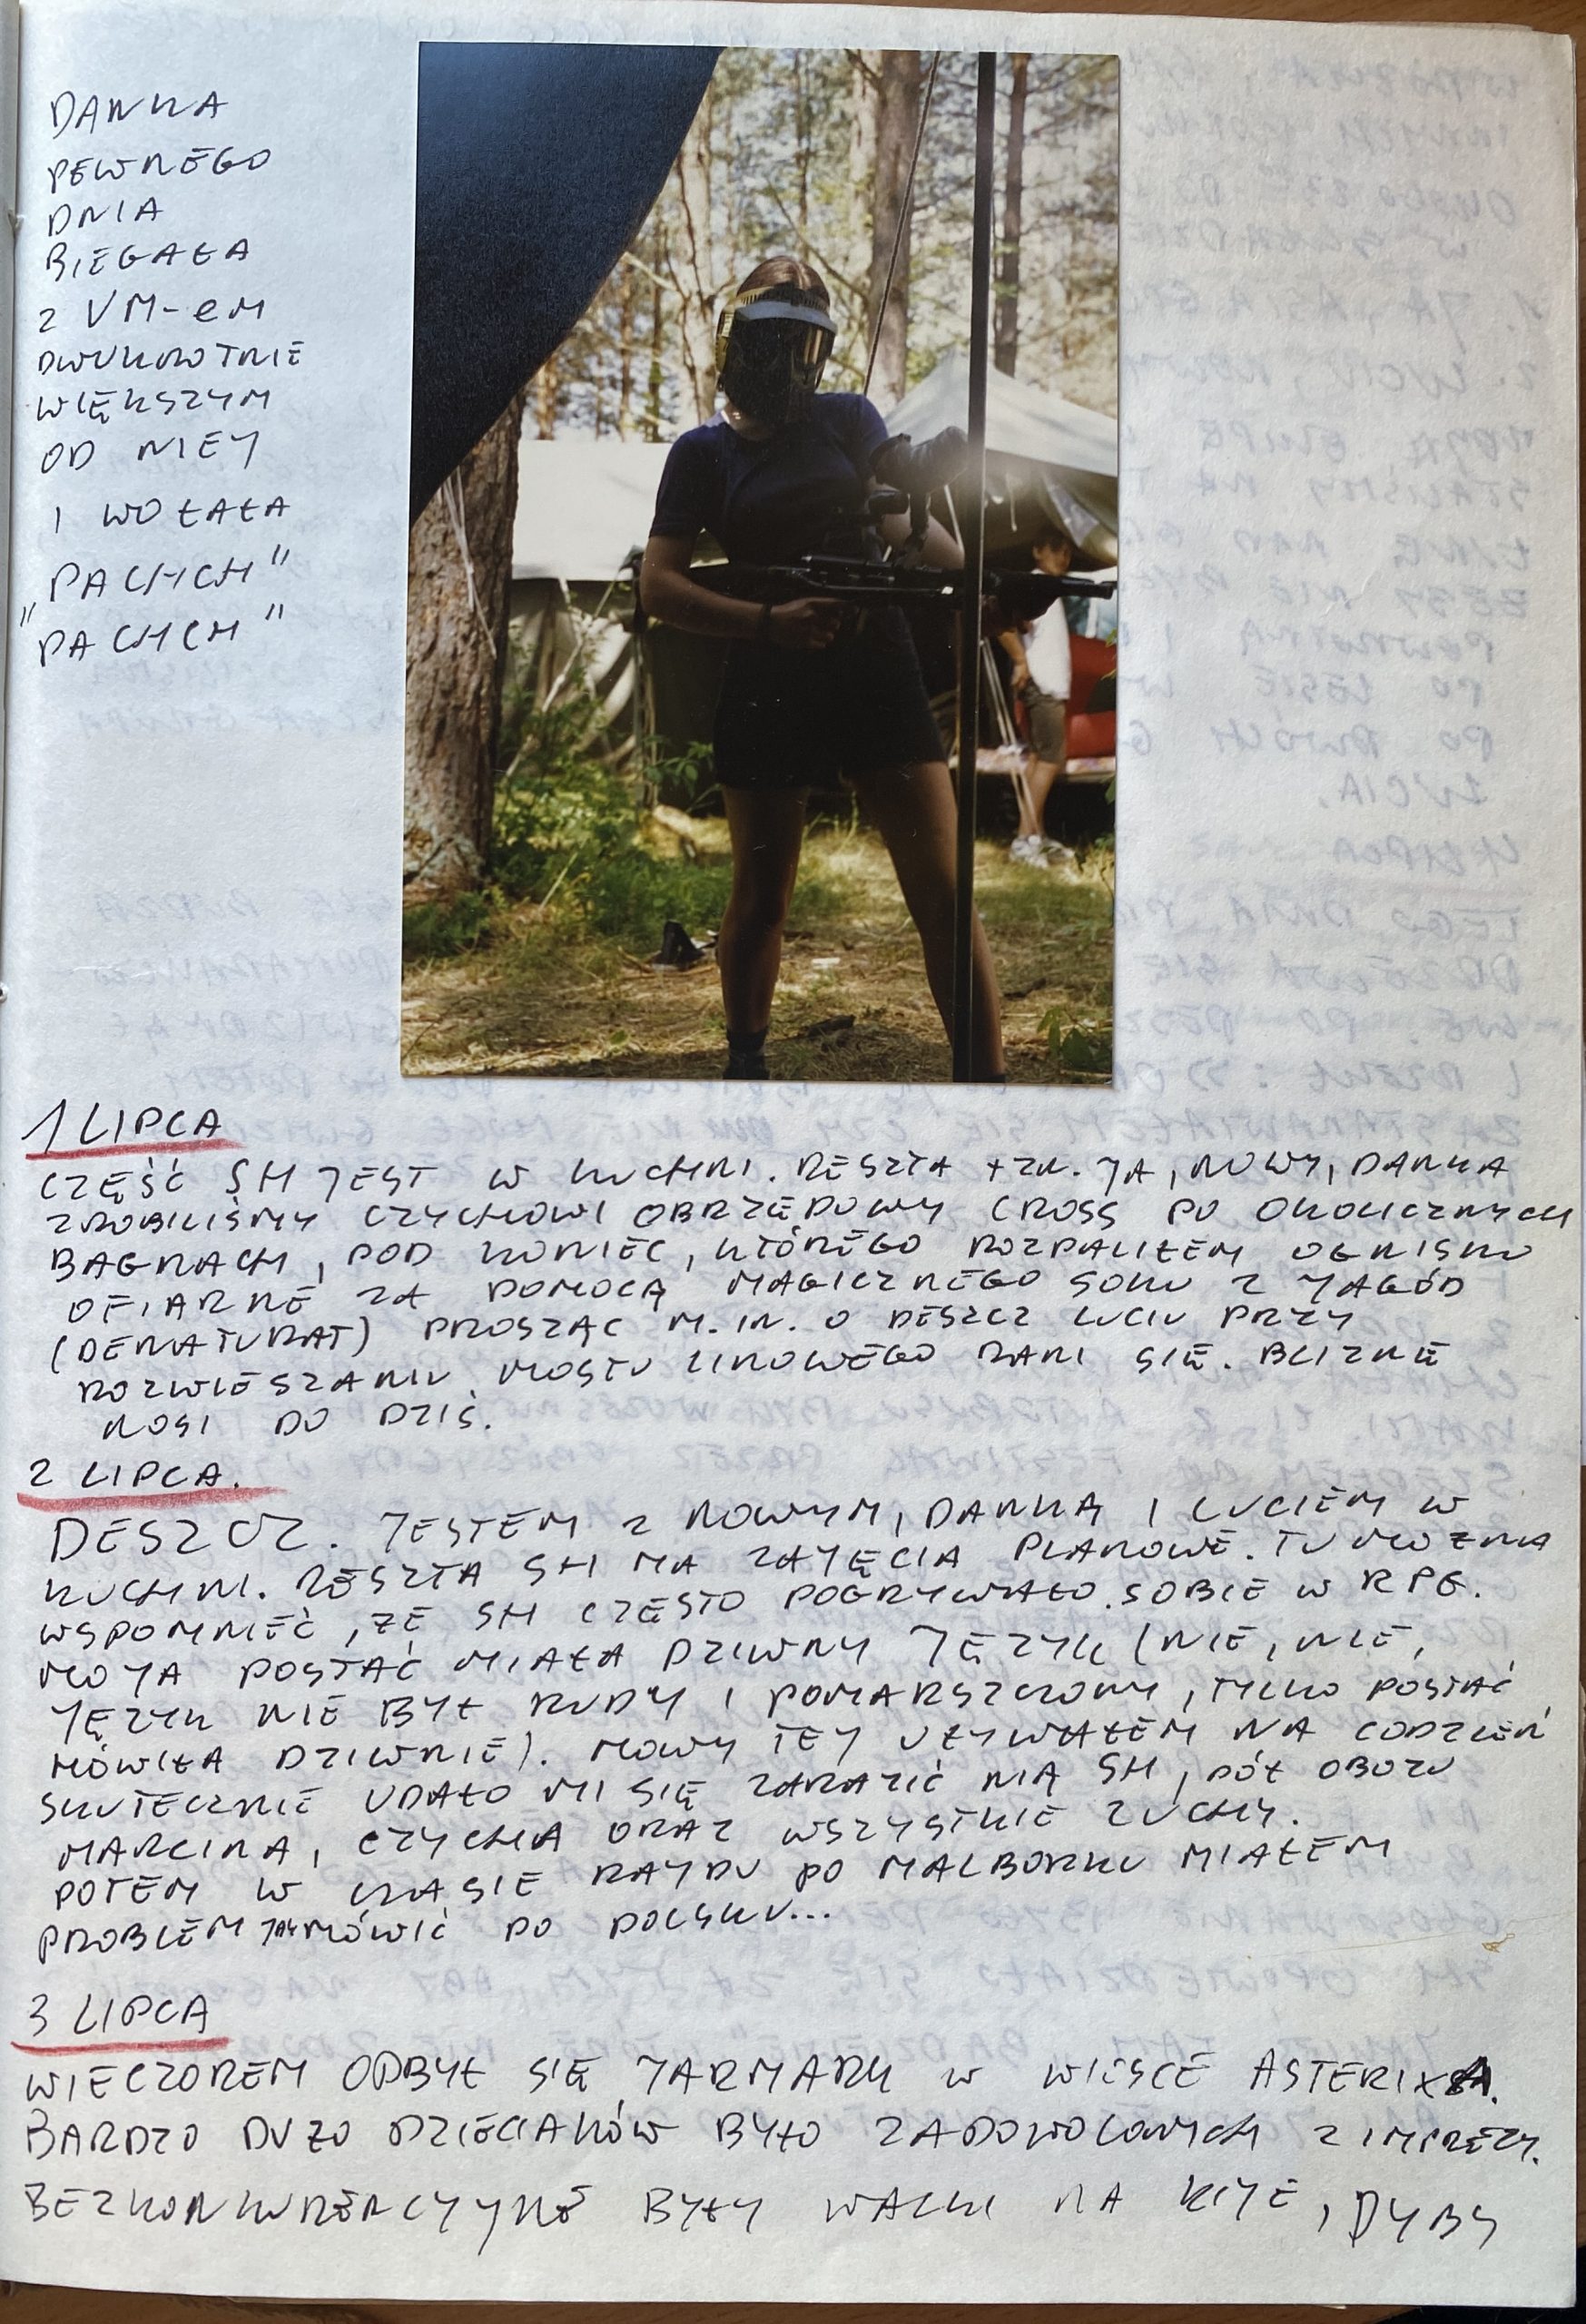 DANKA
PEWNEGO
DNIA
BIEGAŁA
Z VM-eM
DWUKROTNIE
WIĘKSZYM
OD NIEJ
I WOŁAŁA
"PACHCH"
"PACHCH"
1 LIPCA
CZĘŚĆ SH JEST W KUCHNI. RESZTA TZN. JA, NOWY, DANKA
ZROBILIŚMY CZYCHOWI OBRZĘDOWY CROSS PO OKOLICZNYCH
BAGNACH, POD KONIEC, KTÓREGO ROZPALIŁEM OGNISKO
OFIARNE ZA POMOCĄ MAGICZNEGO SOKU Z JAGÓD
(DENATURAT) PROSZĄC M.IN. O DESZCZ LUCIU PRZY
ROZWIESZANIU MOSTU LINOWEGO RANI SIĘ. BLIZNĘ
NOSI DO DZIŚ.
2 LIPCA.
DESZCZ. JESTEM Z NOWYM, DANKĄ I LUCIEM W
KUCHNI. RESZTA SH MA ZAJĘCIA PLANOWE. TU MOŻNA
WSPOMNIEĆ, ŻE SH CZĘSTO POGRYWAŁO SOBIE W RPG.
MOJA POSTAĆ MIAŁA DZIWNY JĘZYK (NIE, NIE,
JĘZYK NIE BYŁ RUDY I POMARSZCZONY, TYLKO POSTAĆ
MÓWIŁA DZIWNIE). MOWY TEJ UŻYWAŁEM NA CODZIEŃ
SKUTECZNIE UDAŁO MI SIĘ ZARAZIĆ NIĄ SH, PÓŁ OBOZU
MARCINA, CZYCHA ORAZ WSZYSTKIE ZUCHY.
POTEM W CZASIE RAJDU PO MALBORKU MIAŁEM
PROBLEM JAK MÓWIĆ PO POLSKU...
3 LIPCA
WIECZOREM ODBYŁ SIĘ JARMARK W WIOSCE ASTERIXA.
BARDZO DUŻO DZIECIAKÓW BYŁO ZADOWOLONYCH Z IMPREZY.
BEZKONKURENCYJNE BYŁY WALKI NA KIJE, DYBY